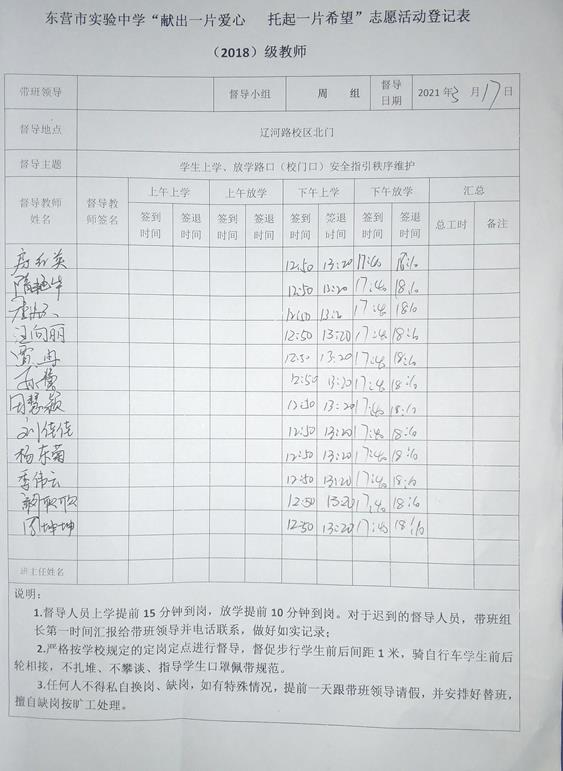 东营市实验中学“献出一片爱心 托起一片希望”志愿活动登记表
（2018）级教师
带班领导 督导小组 周 组 督导日期 2021年3月17日
督导地点 辽河路校区北门
督导主题 学生上学、放学路口（校门口）安全指引秩序维护
督导教师姓名 督导教师签名 上午上学 上午放学 下午上学 下午放学 汇总
签到时间 签退时间 签到时间 签退时间 签到时间 签退时间 签到时间 签退时间 总工时 备注
12:50 13:20 17:40 18:10
12:50 13:20 17:40 18:10
12:50 17:40 18:10
汪向丽 12:50 13:20 17:40 18:10
贾冉 12:50 13:20 17:40 18:10
12:50 13:20 17:40 18:10
田慧颖 12:50 13:20 17:40 18:10
刘佳佳 12:50 13:20 17:40 18:10
杨东菊 12:50 13:20 17:40 18:10
季伟云 12:50 13:20 17:40 18:10
12:50 13:20 17:40 18:10
坤坤 12:50 13:20 17:40 18:10
班主任姓名
说明：
1.督导人员上学提前 15 分钟到岗，放学提前 10 分钟到岗。对于迟到的督导人员，带班组
长第一时间汇报给带班领导并电话联系，做好如实记录；
2.严格按学校规定的定岗定点进行督导，督促步行学生前后间距 1 米，骑自行车学生前后
轮相接，不扎堆、不攀谈、指导学生口罩佩带规范。
3.任何人不得私自换岗、缺岗，如有特殊情况，提前一天跟带班领导请假，并安排好替班，
擅自缺岗按旷工处理。